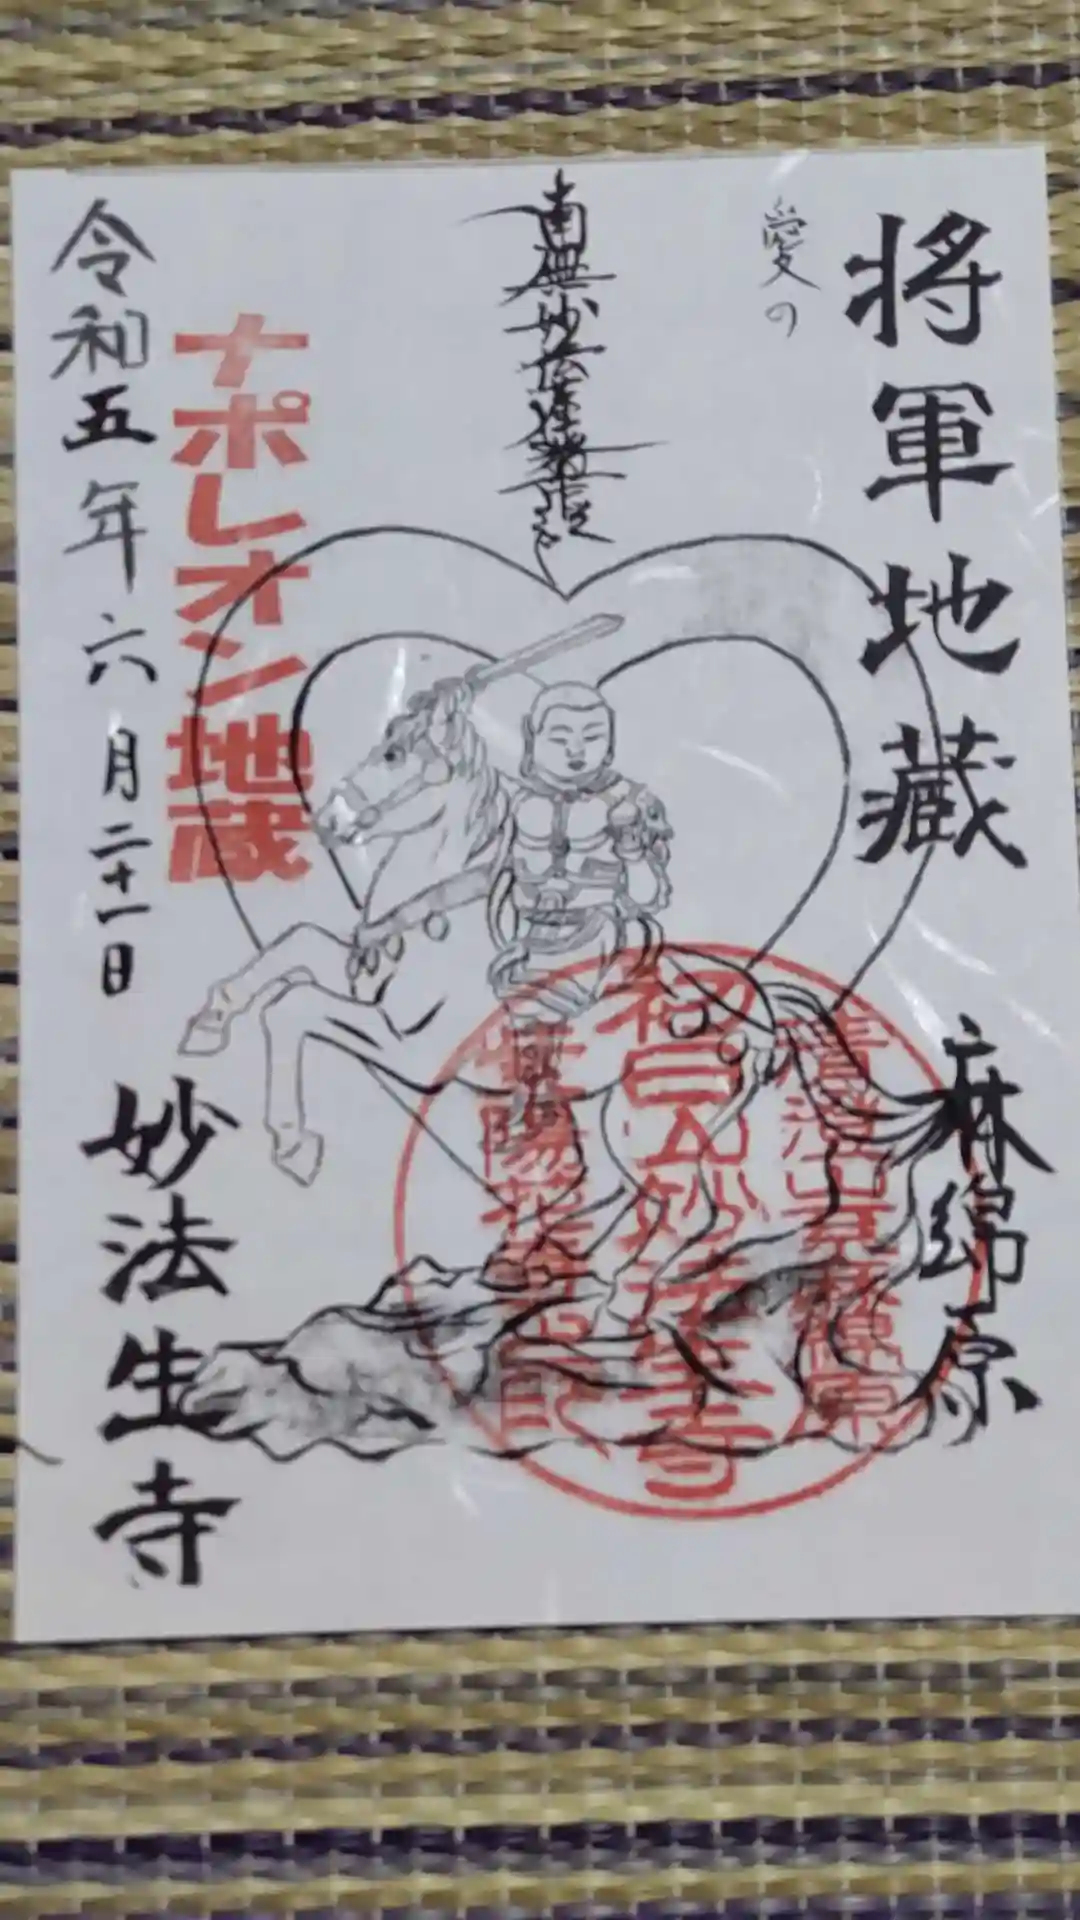 将軍地蔵
麻綿原
愛の
南無妙法蓮華経
ナポレオン地蔵
令和五年六月二十一日
妙法生寺
清澄山奥麻綿原
初日山妙法生寺